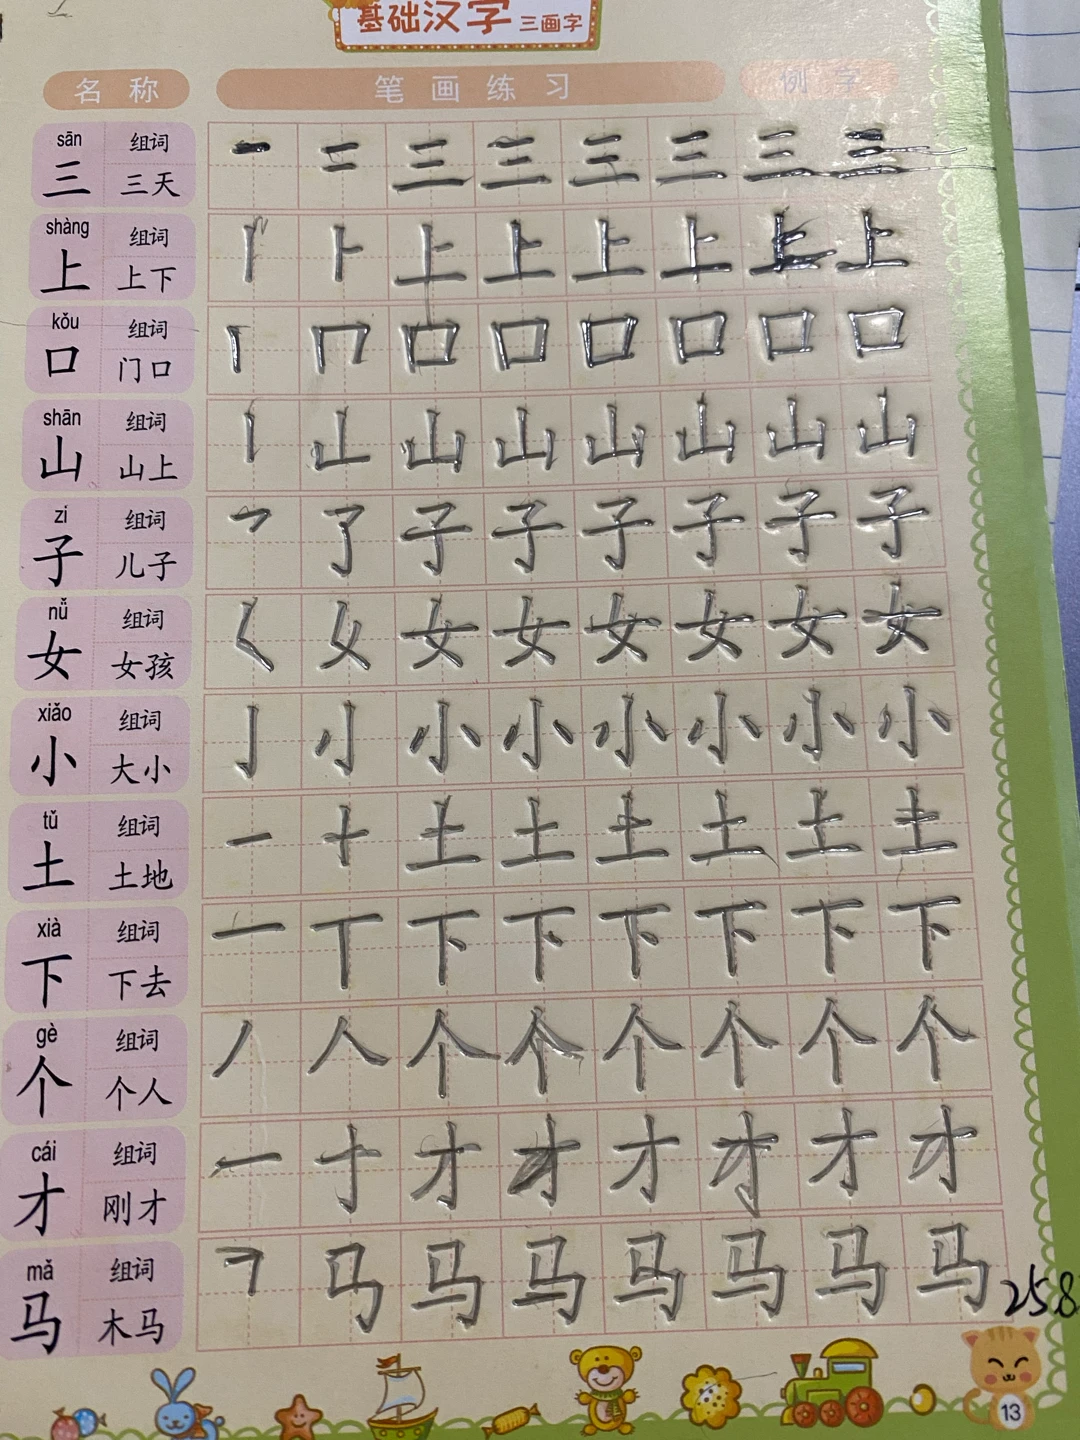 基础汉字 三画字
名称 笔画练习 例字
sān 组词
三 三天 一 二 三 三 三 三 三 三
shàng 组词
上 上下 丨 卜 上 上 上 上 上 上
kǒu 组词
口 门口 丨 冂 口 口 口 口 口 口
shān 组词
山 山上 丨 山 山 山 山 山 山
zi 组词
子 儿子 乛 了 子 子 子 子 子 子
nǚ 组词
女 女孩 𡿨 女 女 女 女 女 女
xiǎo 组词
小 大小 亅 小 小 小 小 小 小
tǔ 组词
土 土地 一 十 土 土 土 土 土 土
xià 组词
下 下去 一 丅 下 下 下 下 下 下
gè 组词
个 个人 丿 人 个 个 个 个 个 个
cái 组词
才 刚才 一 才 才 才 才 才 才
mǎ 组词
马 木马 ㇕ 马 马 马 马 马 马
258
13